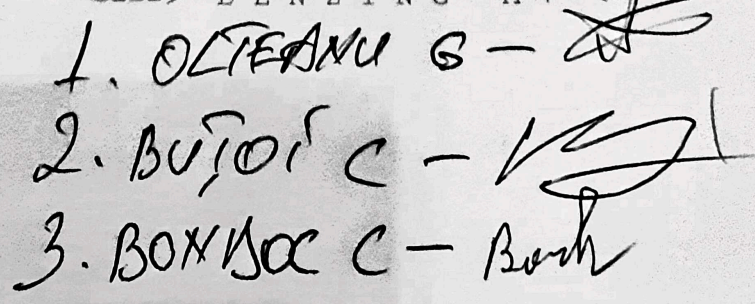 1. OLTEANU G –
2. BUȚOI C –
3. BONDOC C –